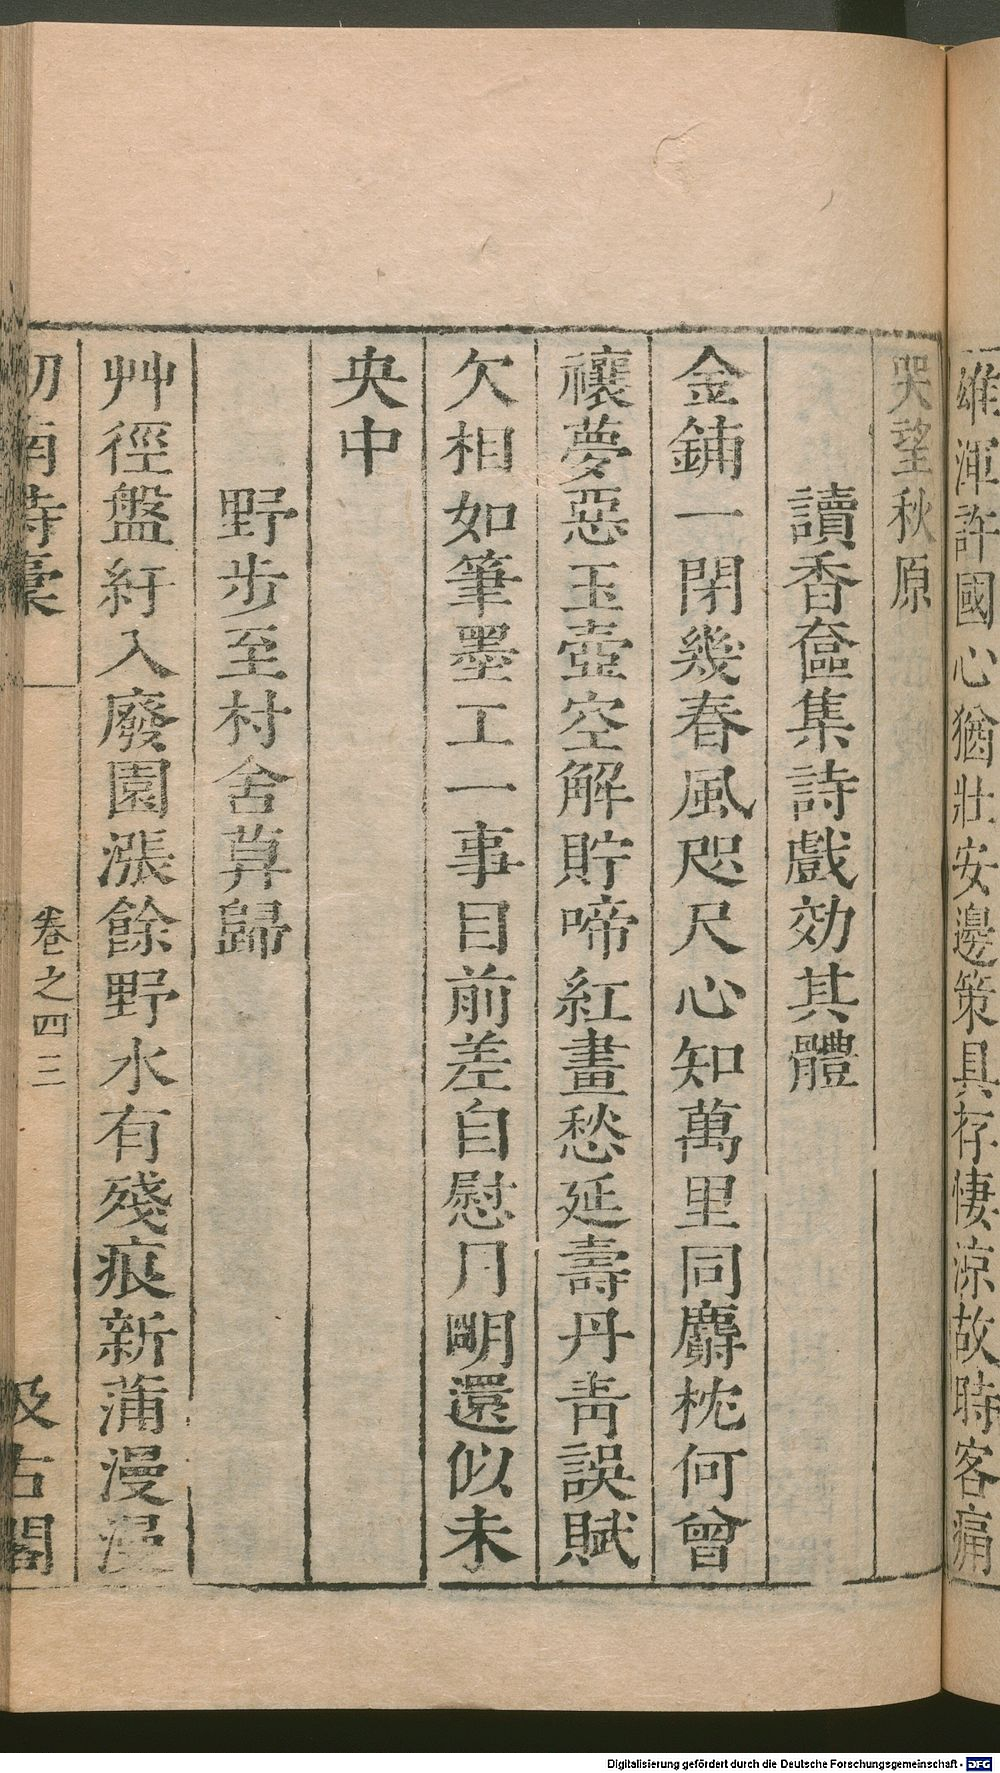 雄渾許國心猶壯安邊策具存悽涼故時客痛
哭望秋原
讀香奩集詩戲効其體
金鋪一閉幾春風咫尺心知萬里同麝枕何曾
禳夢惡玉壺空解貯啼紅畫愁延壽丹青誤賦
欠相如筆墨工一事目前差自慰月明還似未
央中
野步至村舍草歸
艸徑盤紆入廢園漲餘野水有殘痕新蒲漫漫
劎南詩稾
卷之四三
汲古閣
Digitalisierung gefördert durch die Deutsche Forschungsgemeinschaft - DFG